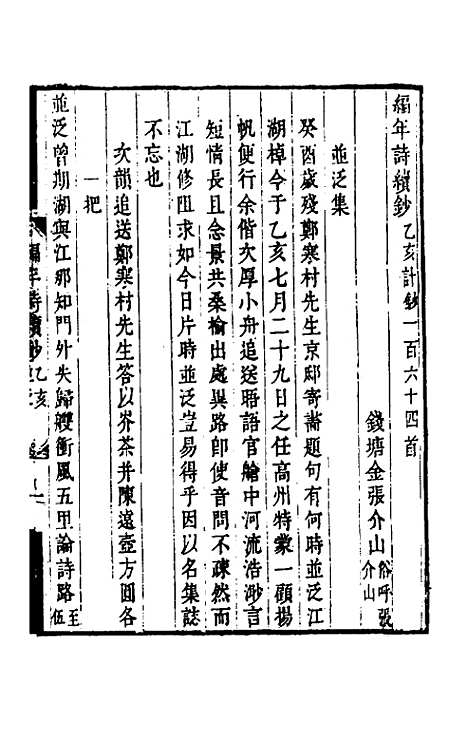 編年詩續鈔乙亥計鈔一百六十四首
錢塘金張介山俗呼張介山
並泛集
癸酉歲殘鄭寒村先生京邸寄齋題句有何時並泛江
湖棹今于乙亥七月二十九日之任高州特蒙一顧揚
帆便行余偕次厚小舟追送晤語官艙中河流浩渺言
短情長且念景共桑榆出處異路卽使音問不疎然而
江湖修阻求如今日片時並泛豈易得乎因以名集誌
不忘也
次韻追送鄭寒村先生答以岕茶并陳遠壺方圓各
一把
並泛曾期湖與江那知門外失歸艭衝風五里論詩路至伍
編年詩續鈔 乙亥